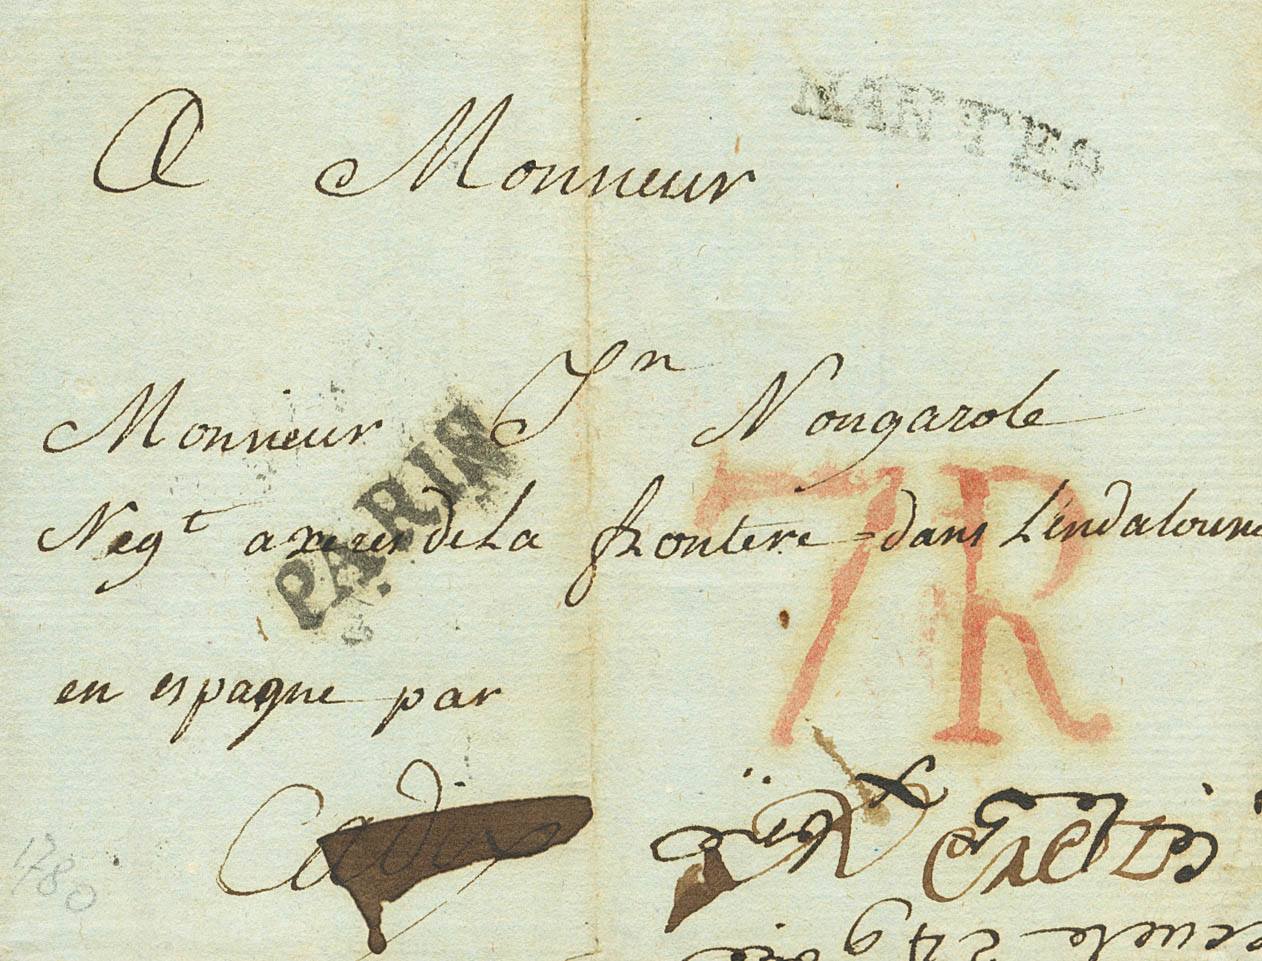 NANTES
A Monsieur
Monsieur Jn Nougarole
PARIS
Negt a xeres de La frontere dans Lendalousie
7R
en espagne par
Cadix
1780